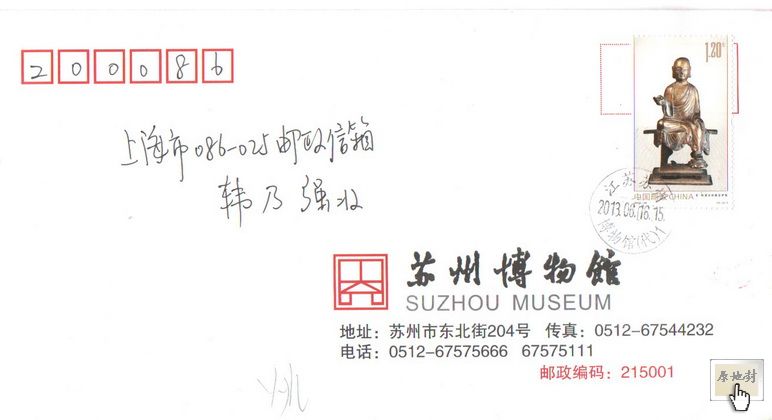 200086
1.20元
上海市086-025邮政信箱
韩乃强收
中国邮政 CHINA
江苏苏州
2013.06.16.15
博物馆(代)1
苏州博物馆
SUZHOU MUSEUM
地址：苏州市东北街204号 传真：0512-67544232
电话：0512-67575666 67575111
邮政编码：215001
原地封